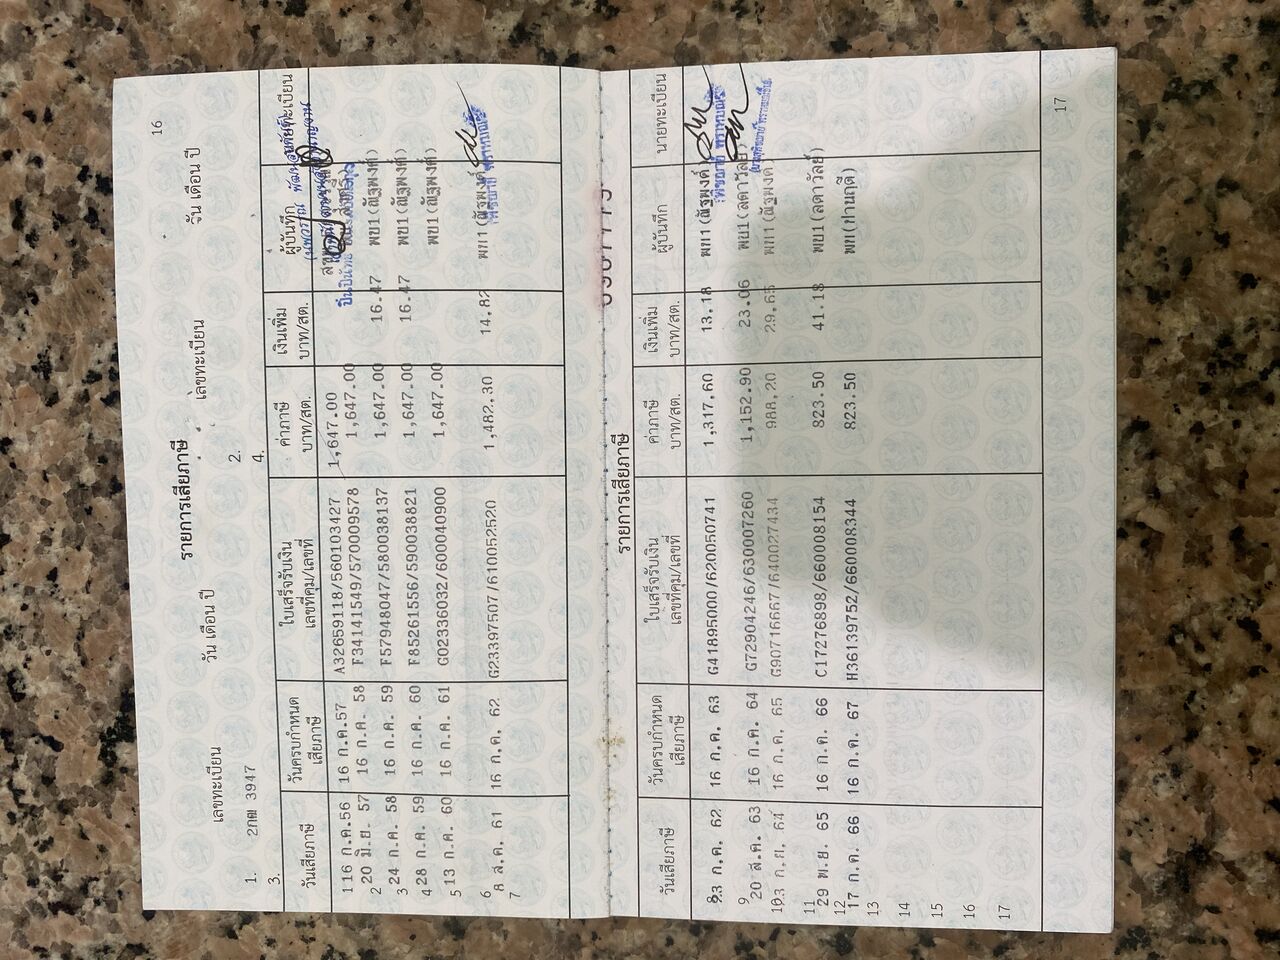 16
รายการเสียภาษี
เลขทะเบียน วัน เดือน ปี เลขทะเบียน วัน เดือน ปี
1. 2กฒ 3947 2.
3. 4.
วันเสียภาษี วันครบกำหนดเสียภาษี ใบเสร็จรับเงิน เลขที่คุม/เลขที่ ค่าภาษี บาท/สต. เงินเพิ่ม บาท/สต. ผู้บันทึก นายทะเบียน
1 16 ก.ค.56 16 ก.ค.57 A32659118/560103427 1,647.00
2 20 มิ.ย. 57 16 ก.ค. 58 F34141549/570009578 1,647.00
3 24 ก.ค. 58 16 ก.ค. 59 F57948047/580038137 1,647.00 16.47 พข1(ณัฐพงศ์)
4 28 ก.ค. 59 16 ก.ค. 60 F85261556/590038821 1,647.00 16.47 พข1(ณัฐพงศ์)
5 13 ก.ค. 60 16 ก.ค. 61 G02336032/600040900 1,647.00 พข1(ณัฐพงศ์)
6 8 ส.ค. 61 16 ก.ค. 62 G23397507/610052520 1,482.30 14.82 พกา1(ณัฐพงศ์)
7
รายการเสียภาษี
วันเสียภาษี วันครบกำหนดเสียภาษี ใบเสร็จรับเงิน เลขที่คุม/เลขที่ ค่าภาษี บาท/สต. เงินเพิ่ม บาท/สต. ผู้บันทึก นายทะเบียน
8 23 ก.ค. 62 16 ก.ค. 63 G41895000/620050741 1,317.60 13.18 พกา1(ณัฐพงศ์)
9 20 ส.ค. 63 16 ก.ค. 64 G72904246/630007260 1,152.90 23.06 พข1(ลดาวัลย์)
10 3 ก.ย. 64 16 ก.ค. 65 G90716667/640027434 988.20 29.65 พกา1(ณัฐพงศ์)
11 29 พ.ย. 65 16 ก.ค. 66 C17276898/660008154 823.50 41.18 พข1(ลดาวัลย์)
12 17 ก.ค. 66 16 ก.ค. 67 H36139752/660008344 823.50
13
14
15
16
17
17